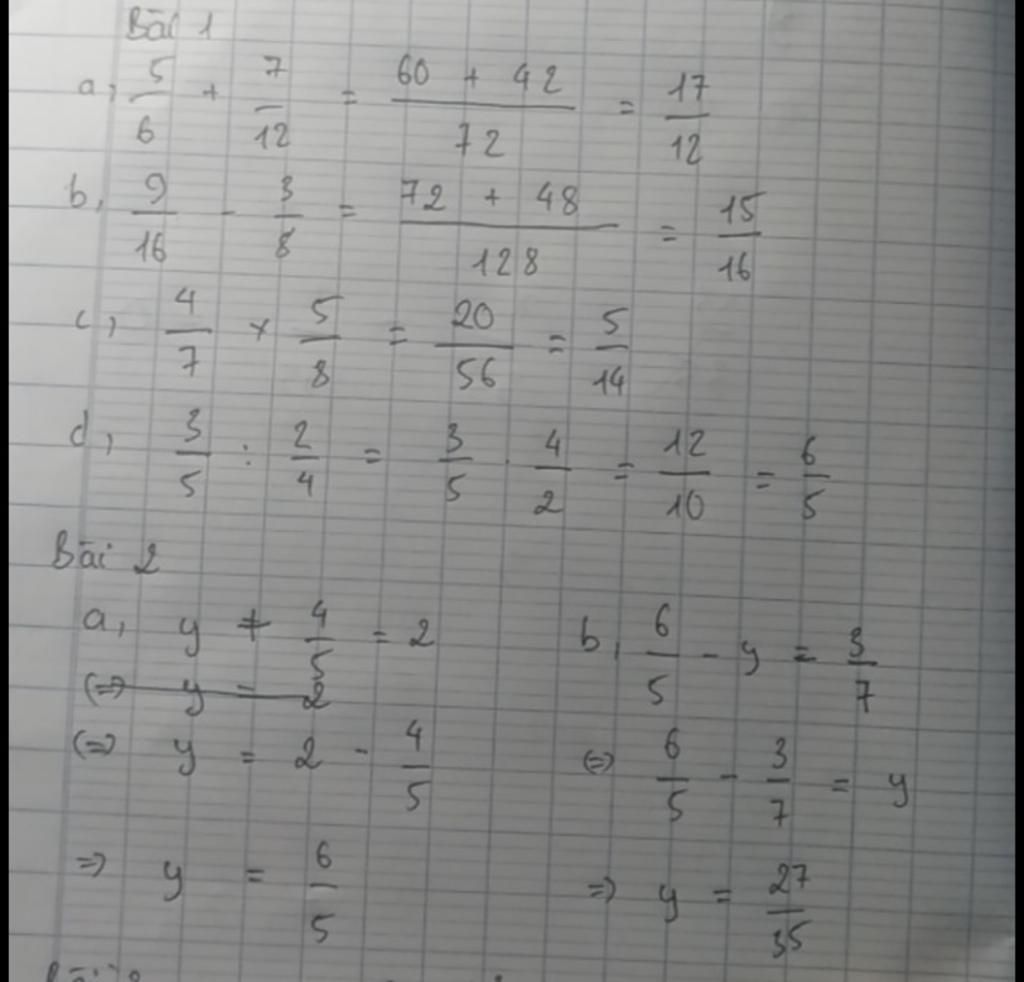 Bài 1
a, 5/6 + 7/12 = (60 + 42)/72 = 17/12
b, 9/16 - 3/8 = (72 + 48)/128 = 15/16
c, 4/7 × 5/8 = 20/56 = 5/14
d, 3/5 : 2/4 = 3/5 . 4/2 = 12/10 = 6/5
Bài 2
a, y + 4/5 = 2
(=) y = 2
(=) y = 2 - 4/5
=> y = 6/5
b, 6/5 - y = 3/7
(=) 6/5 - 3/7 = y
=> y = 27/35